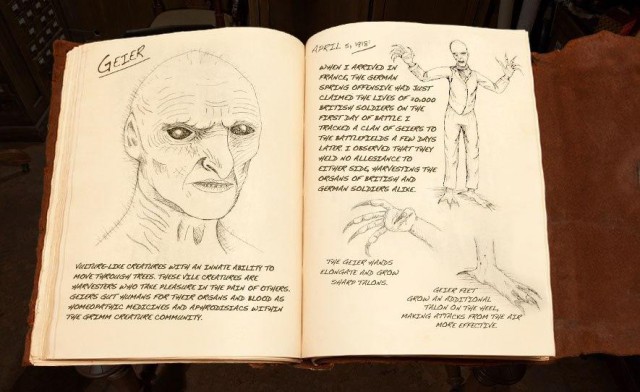 GEIER
VULTURE-LIKE CREATURES WITH AN INNATE ABILITY TO
MOVE THROUGH TREES. THESE VILE CREATURES ARE
HARVESTERS WHO TAKE PLEASURE IN THE PAIN OF OTHERS.
GEIERS GUT HUMANS FOR THEIR ORGANS AND BLOOD AS
HOMEOPATHIC MEDICINES AND APHRODISIACS WITHIN
THE GRIMM CREATURE COMMUNITY.
APRIL 5, 1918
WHEN I ARRIVED IN
FRANCE, THE GERMAN
SPRING OFFENSIVE HAD JUST
CLAIMED THE LIVES OF 10,000
BRITISH SOLDIERS ON THE
FIRST DAY OF BATTLE. I
TRACKED A CLAN OF GEIERS TO
THE BATTLEFIELDS A FEW DAYS
LATER. I OBSERVED THAT THEY
HELD NO ALLEGIANCE TO
EITHER SIDE, HARVESTING THE
ORGANS OF BRITISH AND
GERMAN SOLDIERS ALIKE.
THE GEIER HANDS
ELONGATE AND GROW
SHARP TALONS.
GEIER FEET
GROW AN ADDITIONAL
TALON ON THE HEEL,
MAKING ATTACKS FROM THE AIR
MORE EFFECTIVE.